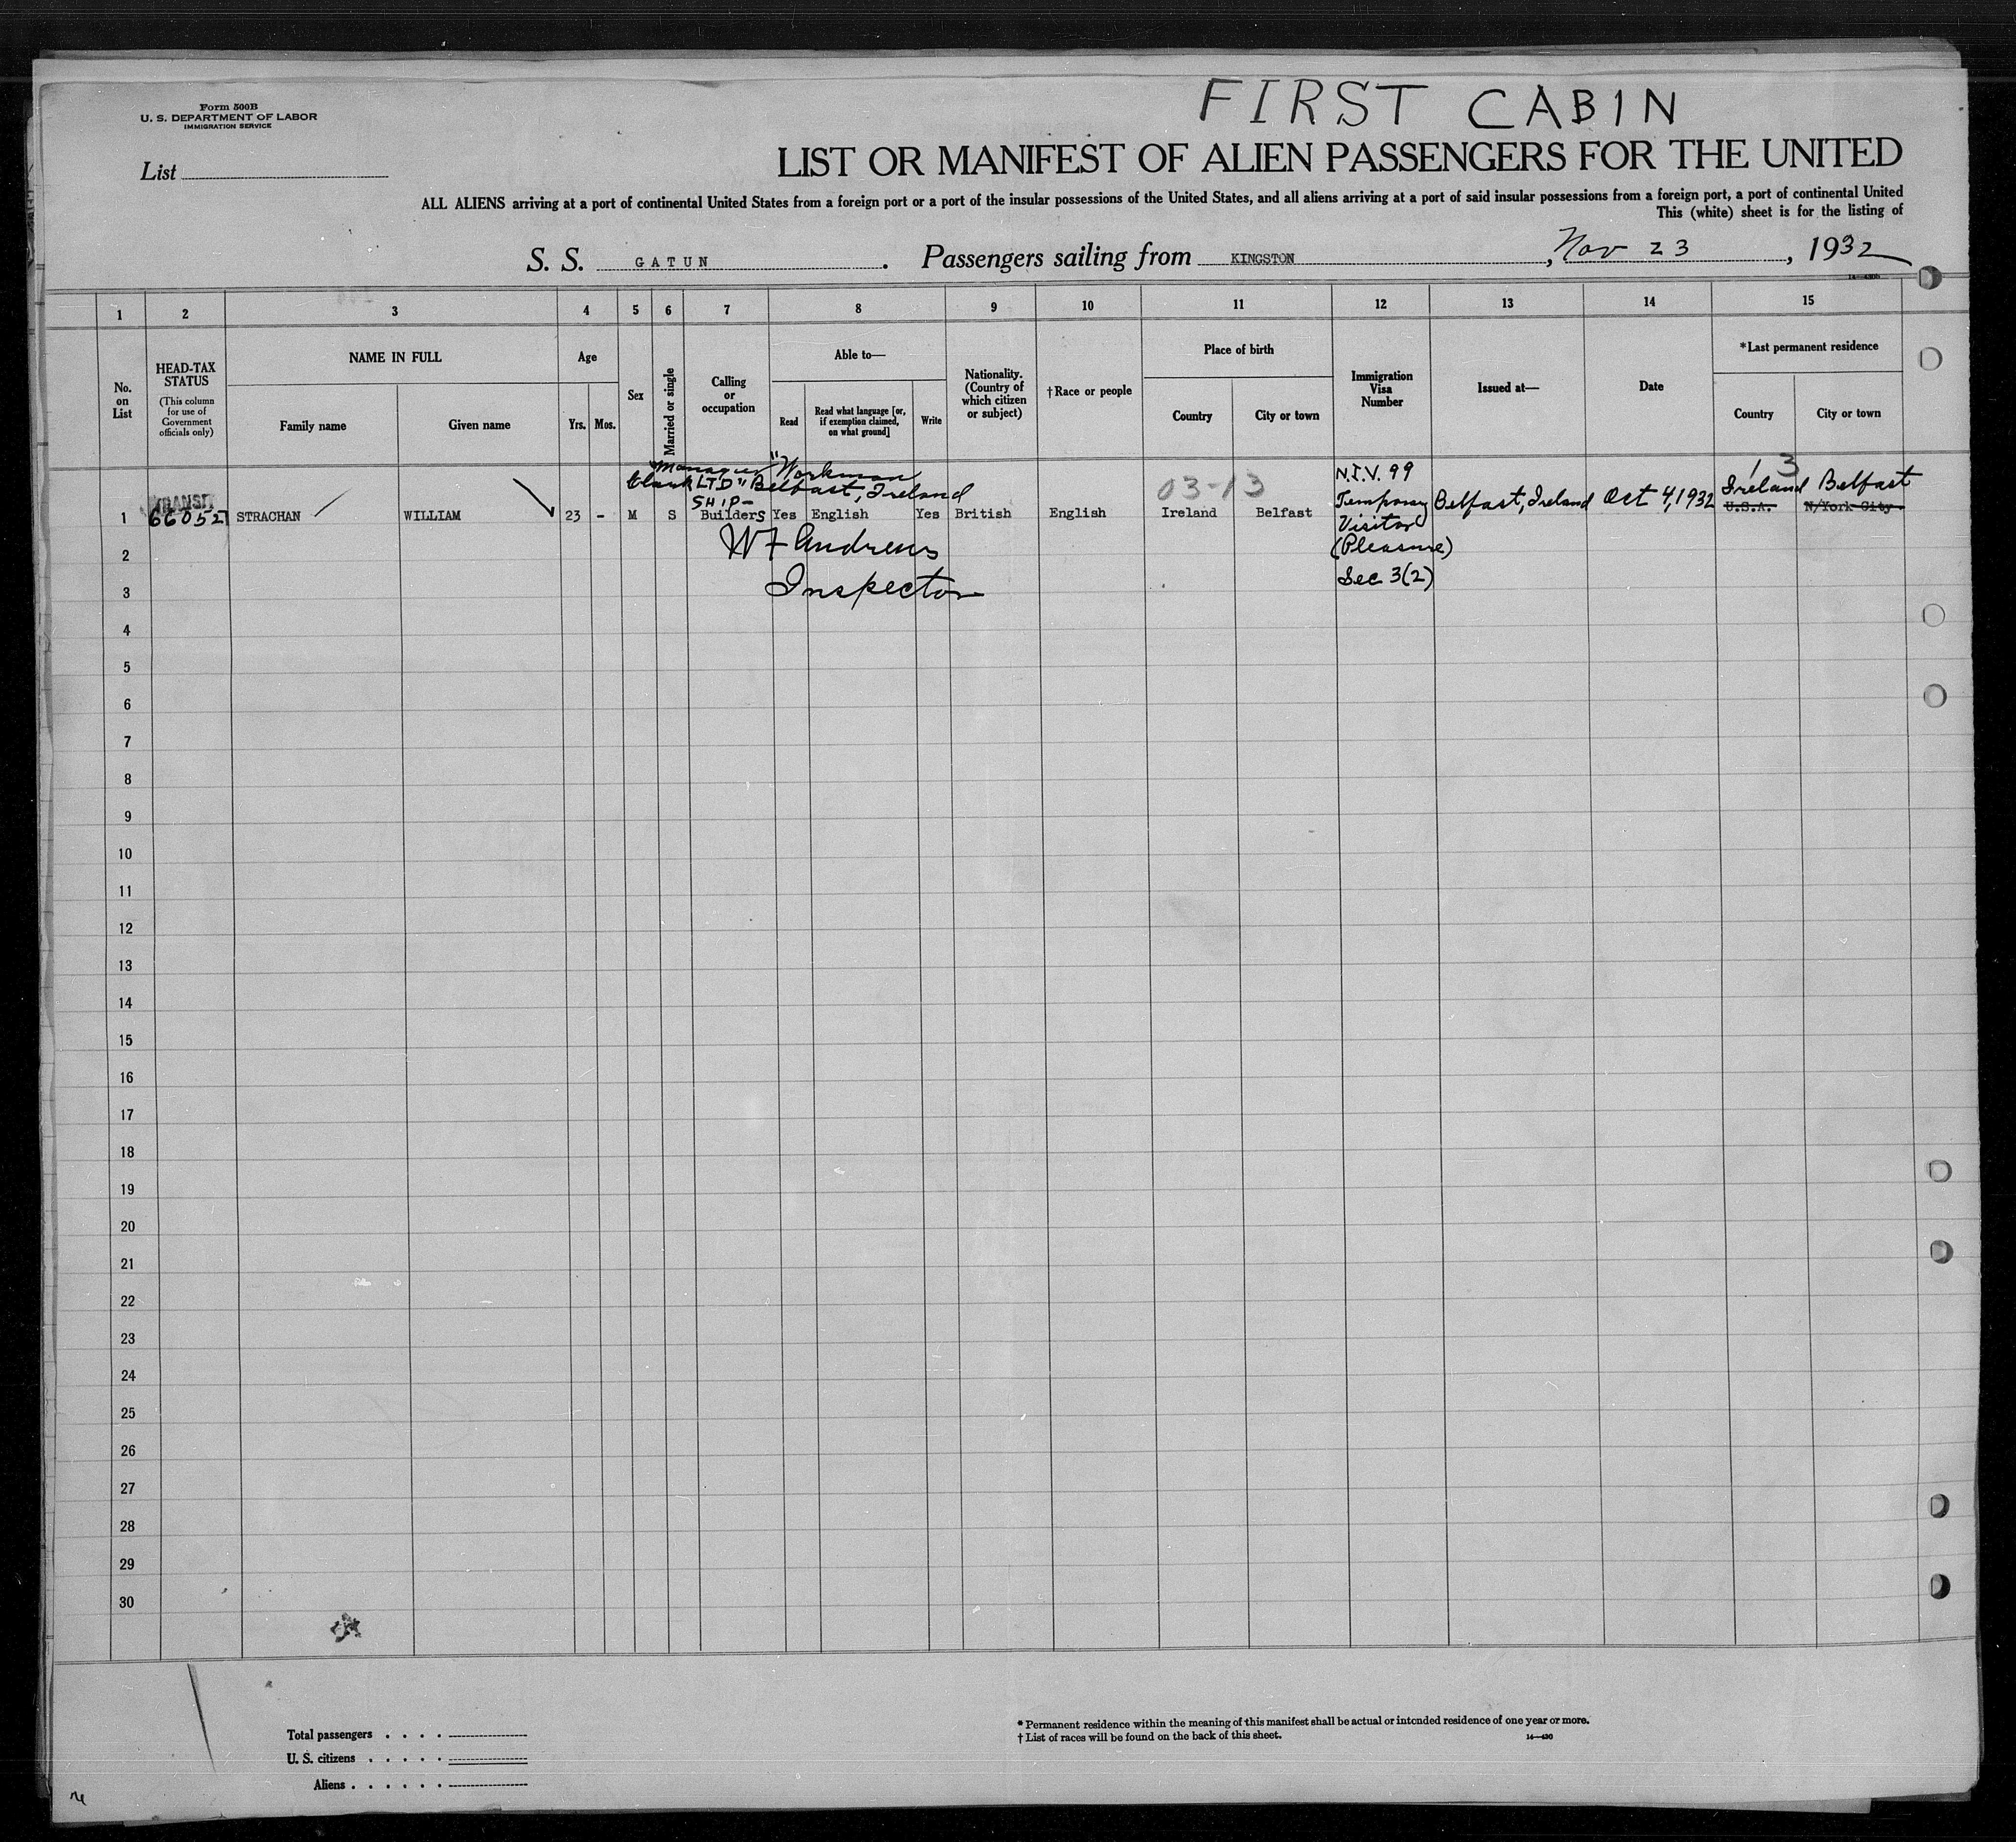 FIRST CABIN
Form 500B
U. S. DEPARTMENT OF LABOR
IMMIGRATION SERVICE
List
LIST OR MANIFEST OF ALIEN PASSENGERS FOR THE UNITED
ALL ALIENS arriving at a port of continental United States from a foreign port or a port of the insular possessions of the United States, and all aliens arriving at a port of said insular possessions from a foreign port, a port of continental United
This (white) sheet is for the listing of
S. S. GATUN. Passengers sailing from KINGSTON, Nov 23, 1932
1 2 3 4 5 6 7 8 9 10 11 12 13 14 15
No. on List
HEAD-TAX STATUS
(This column for use of Government officials only)
NAME IN FULL
Family name
Given name
Age
Yrs. Mos.
Sex
Married or single
Calling or occupation
Able to—
Read
Read what language [or, if exemption claimed, on what ground]
Write
Nationality. (Country of which citizen or subject)
†Race or people
Place of birth
Country
City or town
Immigration Visa Number
Issued at—
Date
*Last permanent residence
Country
City or town
Manager "Workman
Clark LTD" Belfast, Ireland
SHIP-
03-13
N.I.V. 99
1 3
TRANSIT
Ireland Belfast
1 66052 STRACHAN WILLIAM 23 - M S Builders Yes English Yes British English Ireland Belfast Temporary Belfast, Ireland Oct 4, 1932 U.S.A. N/York City
Visitor
2 W F Andrews (Pleasure)
3 Inspector Sec 3(2)
4
5
6
7
8
9
10
11
12
13
14
15
16
17
18
19
20
21
22
23
24
25
26
27
28
29
30
Total passengers . . . .
U. S. citizens . . . . .
Aliens . . . . . .
* Permanent residence within the meaning of this manifest shall be actual or intended residence of one year or more.
† List of races will be found on the back of this sheet.
14—430